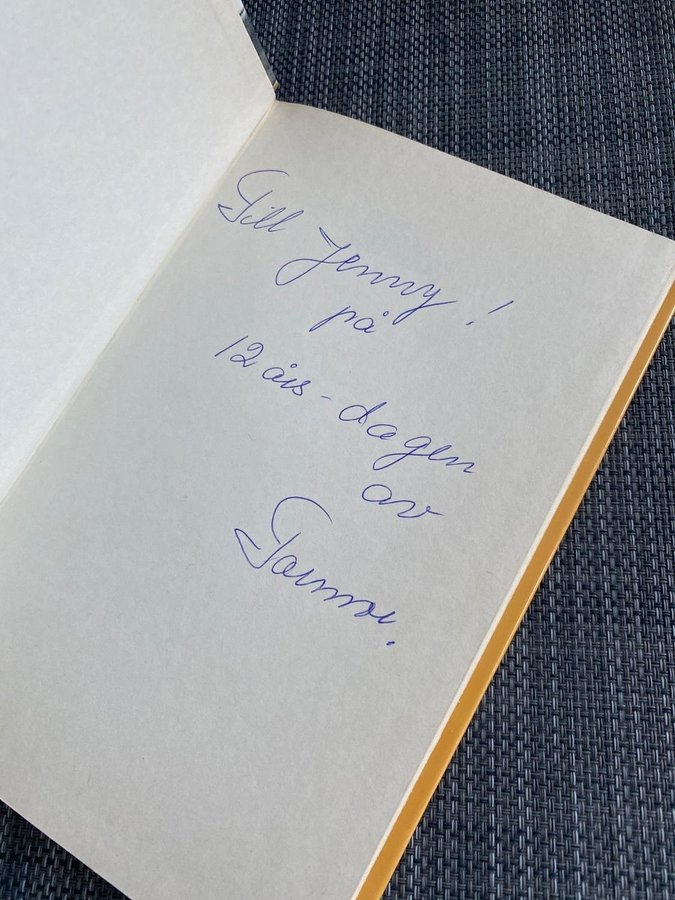 Till Jenny!
på
12 års-dagen
av